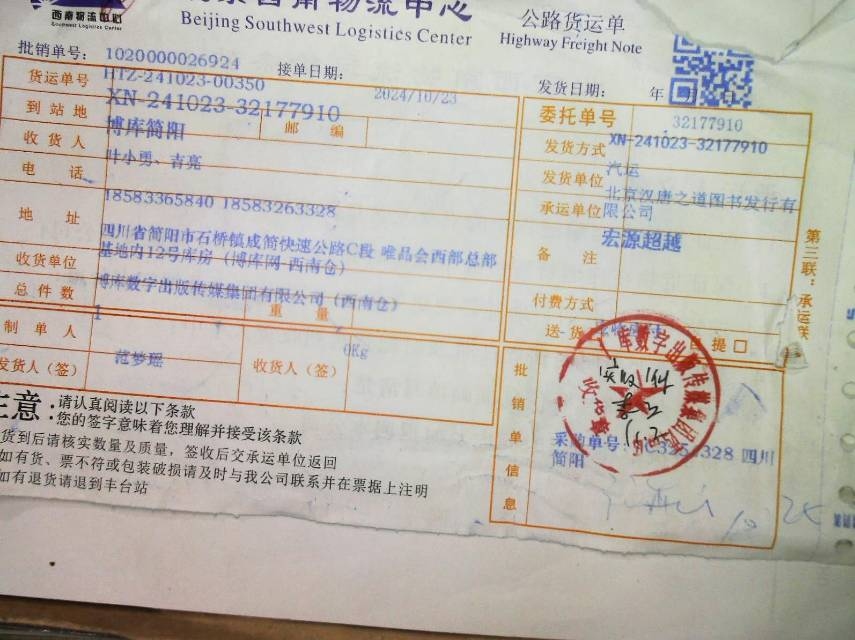 西南物流中心
Southwest Logistics Center
Beijing Southwest Logistics Center
公路货运单
Highway Freight Note
批销单号: 1020000026924
接单日期: 2024/10/23
发货日期: 年
货运单号 HTZ-241023-00350
委托单号 32177910
到站地 XN-241023-32177910
发货方式 XN-241023-32177910
收货人 博库简阳 邮编
发货单位 汽运
电话 叶小勇、吉亮
承运单位 北京汉唐之道图书发行有限公司
地址 18583365840 18583263328
备注 宏源超越
四川省简阳市石桥镇成简快速公路C段 唯品会西部总部
基地内12号库房（博库网-西南仓）
收货单位
博库数字出版传媒集团有限公司（西南仓）
付费方式
总件数 1 重量 0Kg
送货 自提口
制单人 范梦瑶
发货人（签） 收货人（签）
批销单信息
采购单号: 四川
简阳
第三联：承运联
注意:
请认真阅读以下条款
您的签字意味着您理解并接受该条款
货到后请核实数量及质量，签收后交承运单位返回
如有货、票不符或包装破损请及时与我公司联系并在票据上注明
如有退货请退到丰台站
库数字出版传媒集团
实收1件